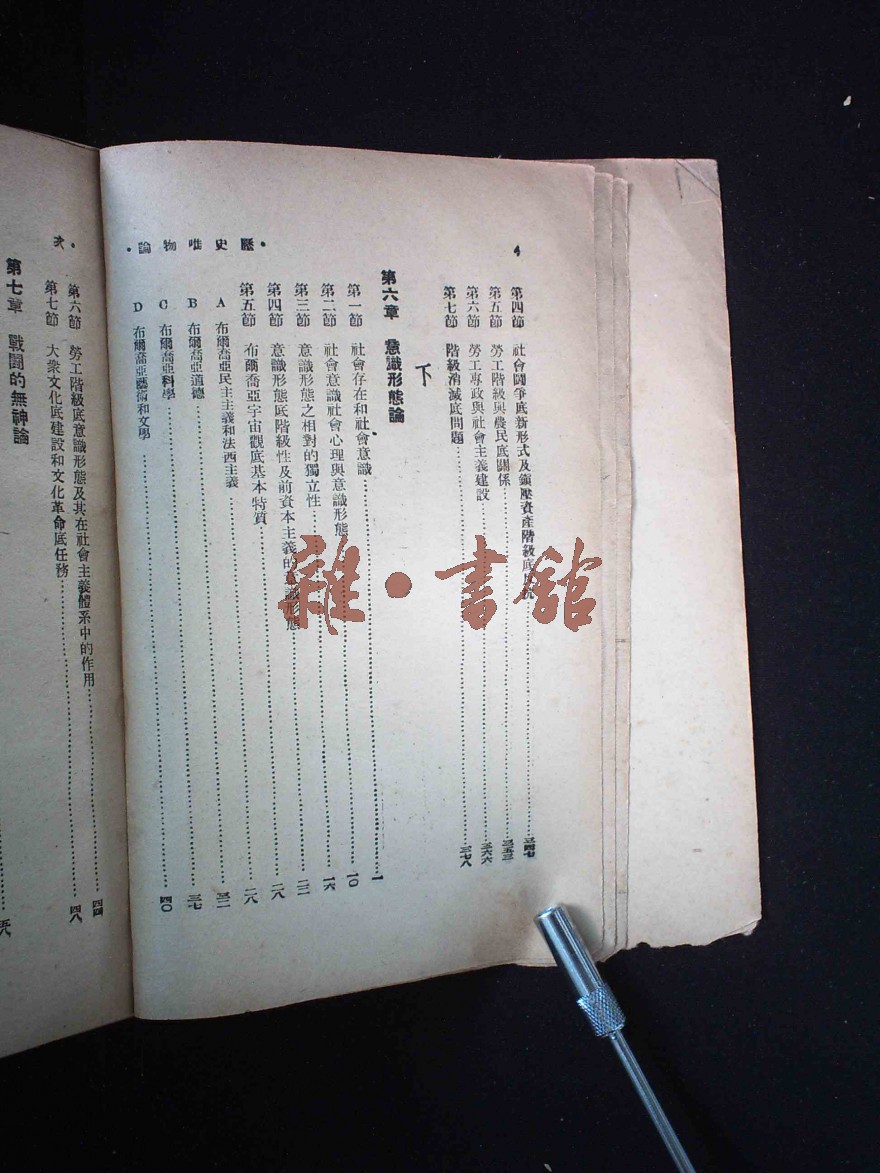 4
•歷史唯物論•
第四節 社會鬪爭底新形式及鎭壓資產階級底反抗……三四七
第五節 勞工階級與農民底關係……三五三
第六節 勞工專政與社會主義建設……三六六
第七節 階級消滅底問題……三七八
下
第六章 意識形態論
第一節 社會存在和社會意識……一
第二節 社會意識社會心理與意識形態……一〇
第三節 意識形態之相對的獨立性……一六
第四節 意識形態底階級性及前資本主義的意識形態……二二
第五節 布爾喬亞宇宙觀底基本特質……二八
A 布爾喬亞民主主義和法西主義……二八
B 布爾喬亞道德……三二
C 布爾喬亞科學……三七
D 布爾喬亞藝術和文學……四〇
次•
第六節 勞工階級底意識形態及其在社會主義體系中的作用……四四
第七節 大衆文化底建設和文化革命底任務……四八
第七章 戰鬪的無神論
雜·書館